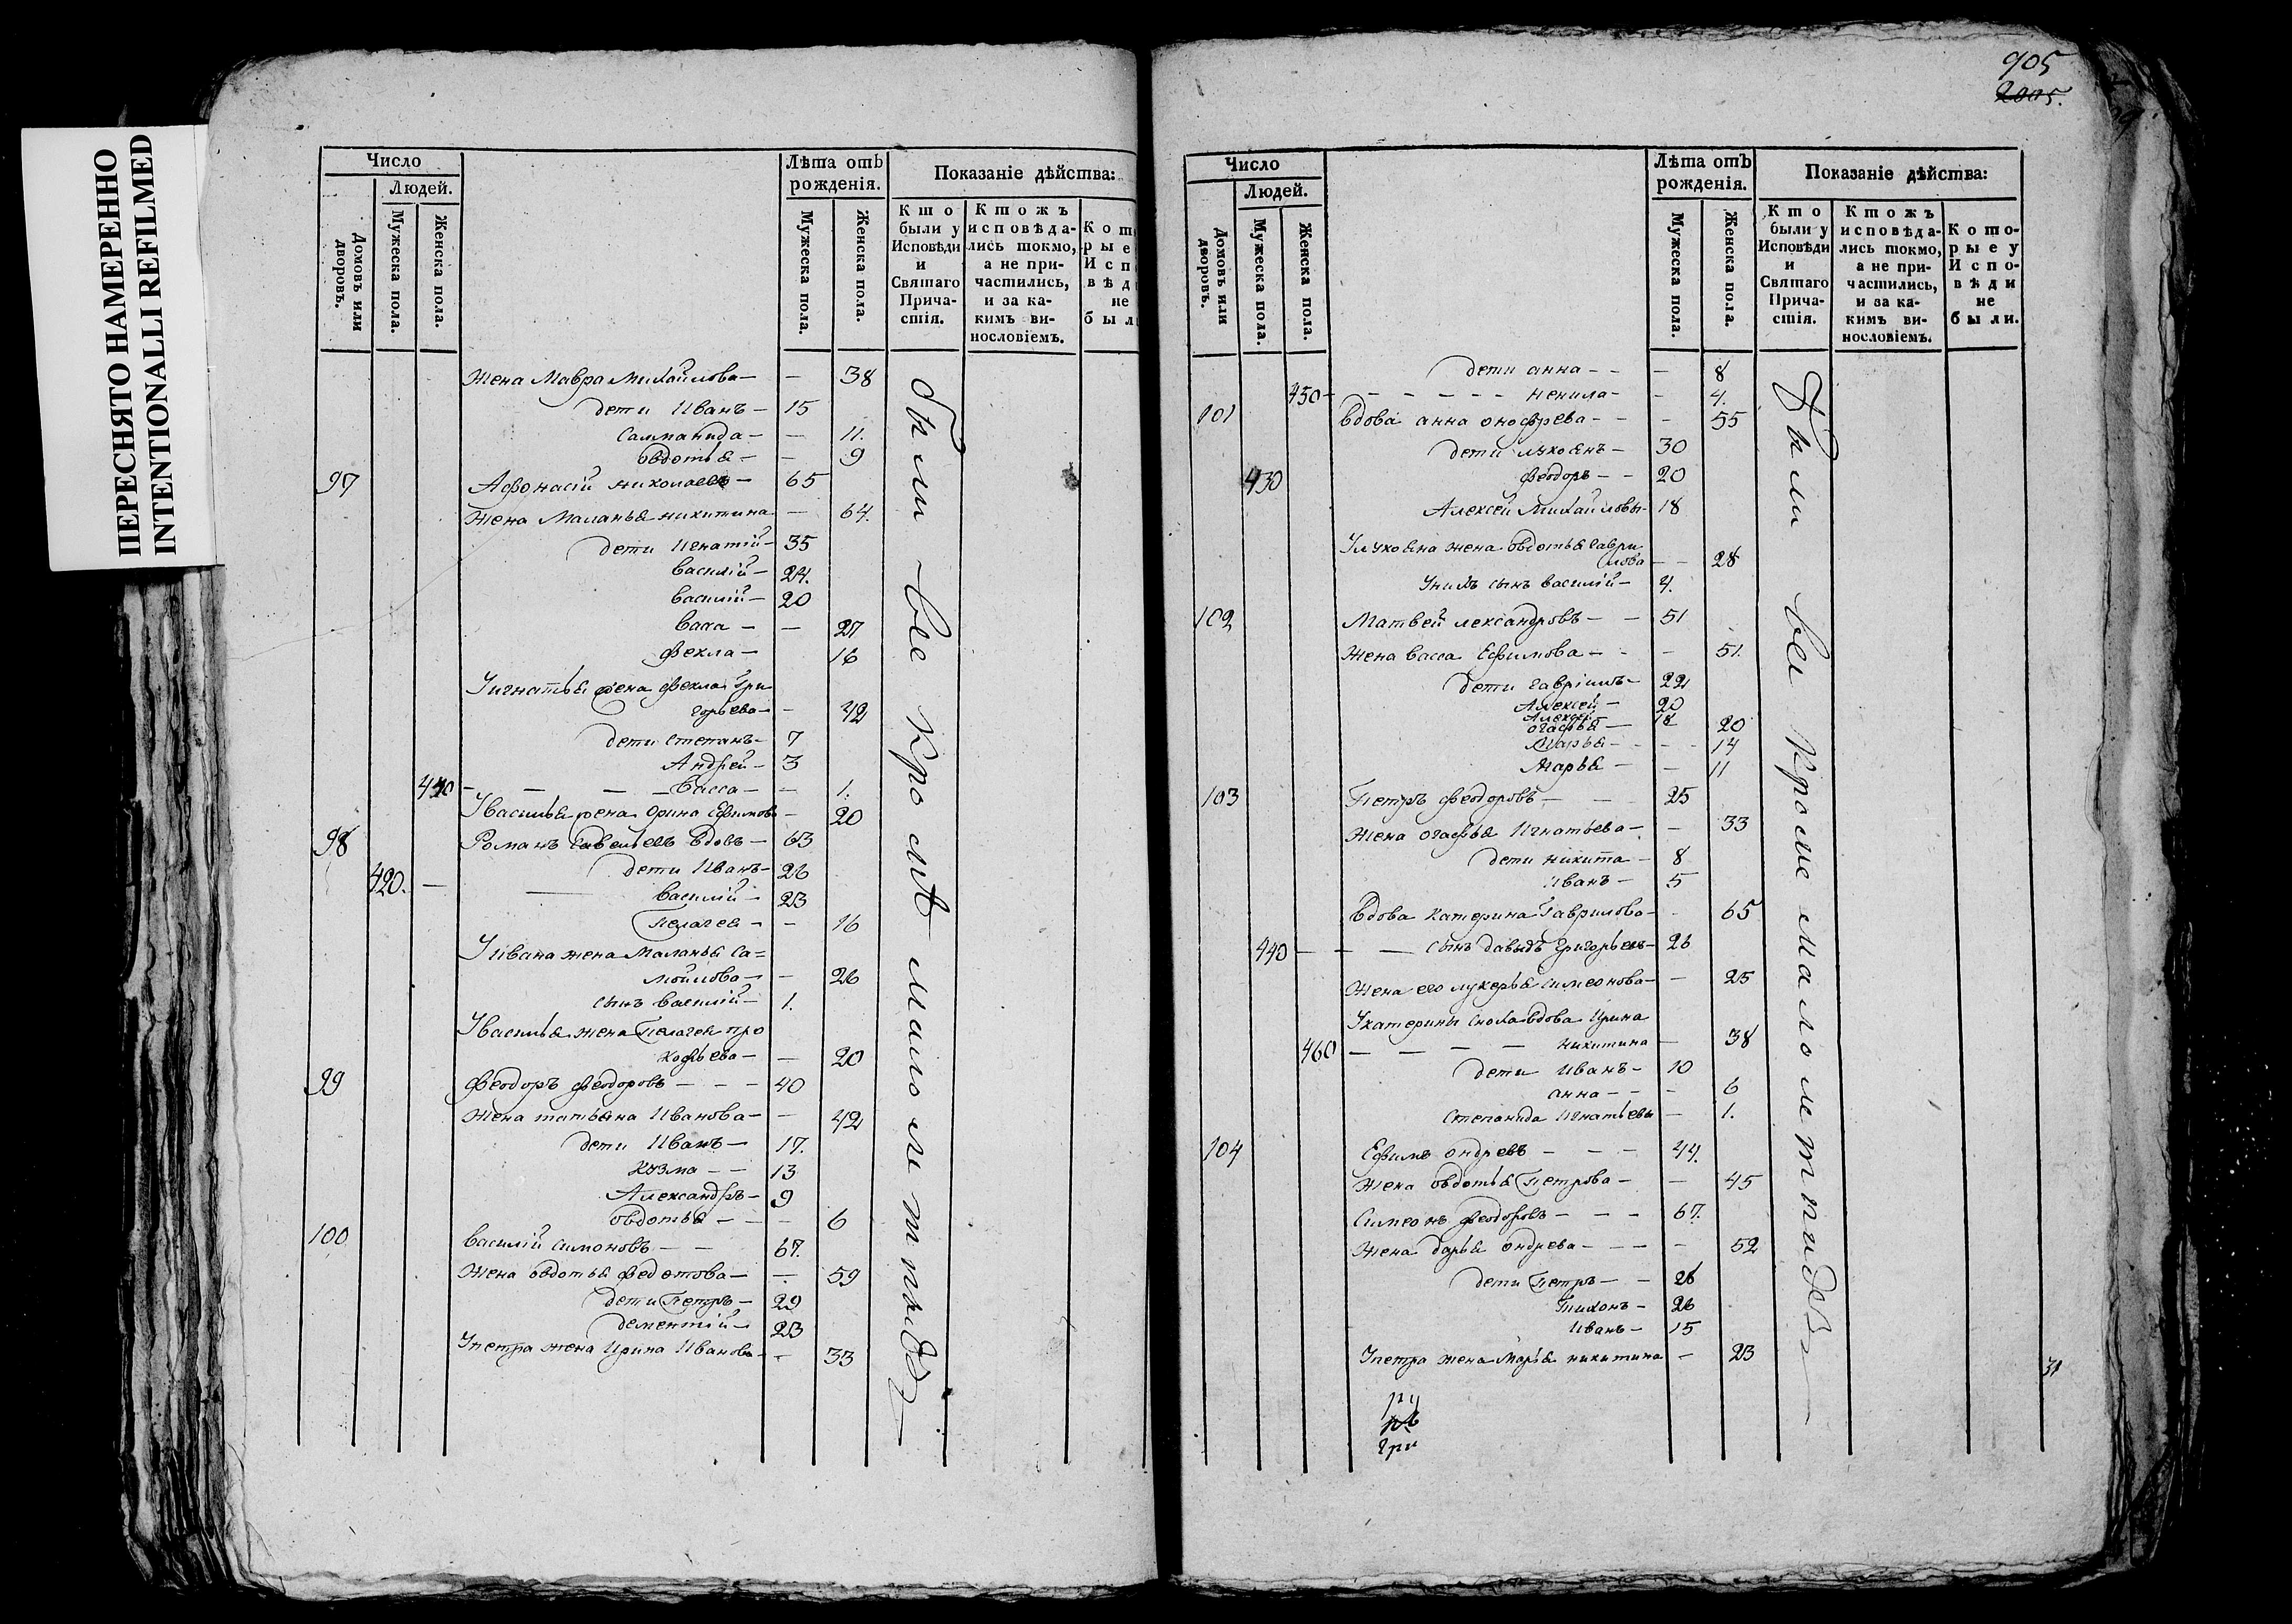 ПЕРЕСНЯТО НАМЕРЕННО
INTENTIONALLI REFILMED
Число
Людей.
Домовъ или дворовъ.
Мужеска пола.
Женска пола.
Лѣта отъ рожденія.
Мужеска пола.
Женска пола.
Показаніе дѣйства:
Кто были у Исповѣди и Святаго Прича-стія.
Ктожъ исповѣда-лись токмо, а не при-частились, и за ка-кимъ ви-нословіемъ.
Жена Мавра Михайлова — — 38
дети Иванъ — 15
овдотья — — 9
97 Афонасій николаевъ — 65
Жена Маланья никитина — 64.
дети Игнатій — 35
Василій — 24.
василій — 20
васа — — 27
Фекла — 16
Уигнатья жена Фекла Гри
горьева — — 42
дети степанъ — 7
Андрей — 3
440 — — — васса — — 1.
Увасилья жена Орина Ефимова — 20
98 Романъ Савельевъ вдовъ — 63
дети Иванъ — 26
420. — василій — 23
Пелагея — — 16
Уивана жена Маланья Са=
мойлова — — 26
сынъ василій — 1.
Увасилья жена Пелагея про
кофьева — — 20
99 Феодоръ Феодоровъ — — — 40
Жена татьяна Иванова — — 42
дети Иванъ — 17.
Козма — — 13
Александръ — 9
овдотья — — — 6
100 василій симоновъ — — 67.
Жена овдотья федотова — — 59
дети Петръ — 29
дементій — 23
Упетра жена Ирина Иванова — — 33
были все кромѣ малолетнидѣ
905
2005.
Число
Людей.
Домовъ или дворовъ.
Мужеска пола.
Женска пола.
Лѣта отъ рожденія.
Мужеска пола.
Женска пола.
Показаніе дѣйства:
Кто были у Исповѣди и Святаго Прича-стія.
Ктожъ исповѣда-лись токмо, а не при-частились, и за ка-кимъ ви-нословіемъ.
Кото-рые у Испо-вѣди не были.
дети анна — — — 8
450 — — — — — — ненила — — 4.
101 Вдова анна онофрева — — — 55
дети лукоянъ — 30
430 Феодоръ — — 20
Алексей Михайловы — 18
Улукояна жена овдотья гаври
лова — — 28
Унихъ сынъ василій — 4.
102 Матвей лександровъ — — 51
Жена васса Ефимова — — — 51.
дети гавріилъ — 22
Алексей — 20
Алексей — 18
огафья — 20
Марья — — — 14
Марья — — 11
103 Петръ Феодоровъ — — 25
Жена огафья Игнатьева — — 33
дети никита — 8
иванъ — 5
Вдова катерина Гаврилова — — 65
440 — — — сынъ давыдъ григорьевъ — 26
Жена его лукерья симеонова — — 25
Укатерины сноха вдова Ирина
460 — — — — никитина — 38
дети иванъ — 10
анна — — 6
степанида игнатьевы — 1.
104 Ефимъ ондревъ — — — 44.
Жена овдотья Петрова — — 45
Симеонъ Феодоровъ — — — 67.
Жена дарья ондрева — — — — 52
дети Петръ — — 28
Тихонъ — 26
иванъ — 15
Упетра жена Марья никитина — 23
были все кроме малолетнидѣ
31
ру
гри